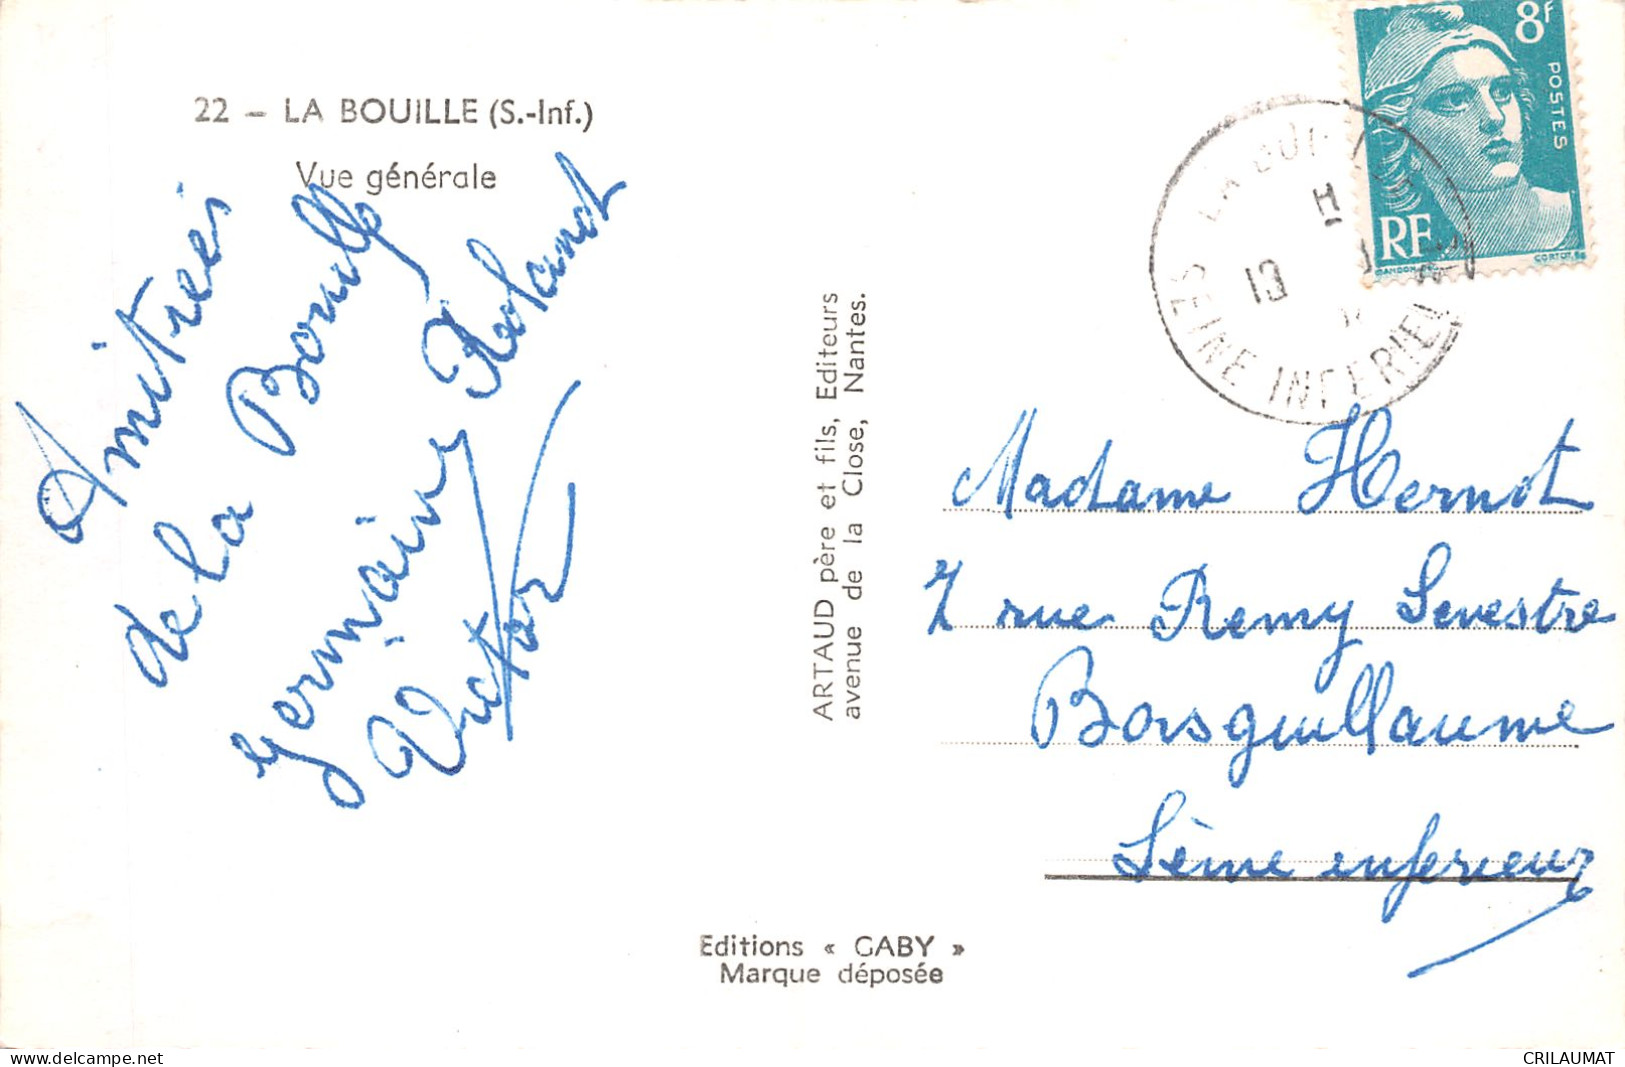 22 – LA BOUILLE (S.-Inf.)
Vue générale
Amitiés
de la Bouille
Germaine Roland
Victor
ARTAUD père et fils, Editeurs
avenue de la Close, Nantes.
Editions « GABY »
Marque déposée
8F
POSTES
RF
CORTOT.SC
LA BOUILLE
13
SEINE INFERIEU
Madame Hernot
7 rue Remy Sevestre
Boisguillaume
Sème inferieur
delcampe.net
CRILAUMAT